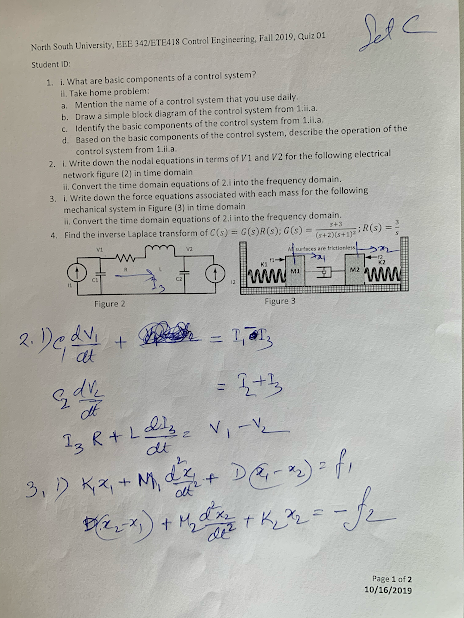 Set C
North South University, EEE 342/ETE418 Control Engineering, Fall 2019, Quiz 01
Student ID:
1. i. What are basic components of a control system?
ii. Take home problem:
a. Mention the name of a control system that you use daily.
b. Draw a simple block diagram of the control system from 1.ii.a.
c. Identify the basic components of the control system from 1.ii.a.
d. Based on the basic components of the control system, describe the operation of the
control system from 1.ii.a.
2. i. Write down the nodal equations in terms of V1 and V2 for the following electrical
network figure (2) in time domain
ii. Convert the time domain equations of 2.i into the frequency domain.
3. i. Write down the force equations associated with each mass for the following
mechanical system in Figure (3) in time domain
ii. Convert the time domain equations of 2.i into the frequency domain.
4. Find the inverse Laplace transform of C(s) = G(s)R(s); G(s) = (s+3)/((s+2)(s+1)²); R(s) = 3/s
V1 V2 All surfaces are frictionless x1 x2
R L f1 f2
C1 I3 C2 K1 M1 M2 K2
I1 I2
Figure 2 Figure 3
2. i) C₁ dV₁/dt + = I₁ - I₃
C₂ dV₂/dt = I₂ + I₃
I₃ R + L dI₃/dt = V₁ - V₂
3. i) K₁x₁ + M₁ d²x₁/dt² + D(ẋ₁ - ẋ₂) = f₁
D(ẋ₂ - ẋ₁) + M₂ d²x₂/dt² + K₂x₂ = -f₂
Page 1 of 2
10/16/2019